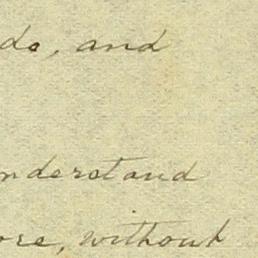 do, and
nderstand
ore, without